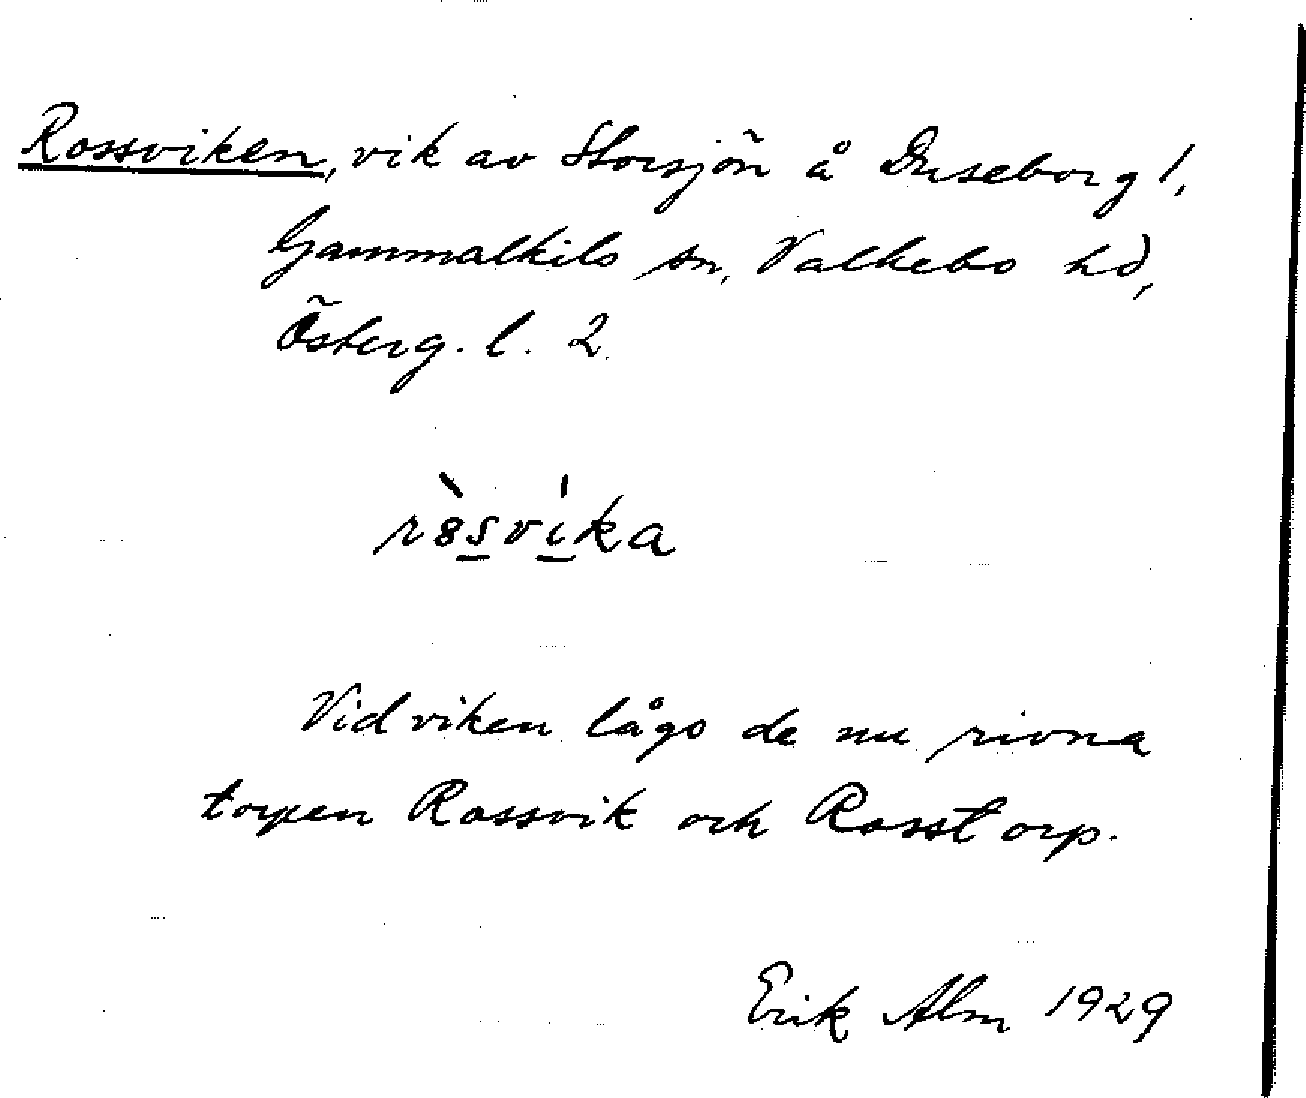 Rossviken, vik av Storsjön å Duseborg 1,
Gammalkils sn, Valkebo hd,
Österg. l. 2
ròsvíka
Vid viken lågo de nu rivna
torpen Rossvik och Rosstorp.
Erik Alm 1929